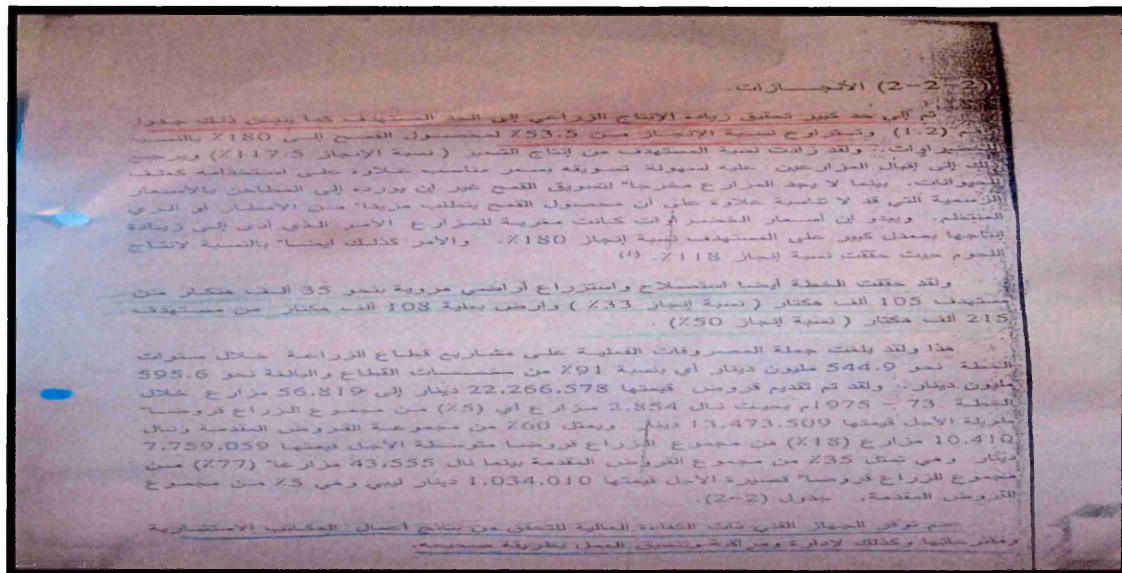 (2-2-2) الأنجازات.
تم إلى حد كبير تحقيق زيادة الانتاج الزراعي إلى الحد المستهدف كما يبين ذلك جدول
(1.2) وتتراوح نسبة الانجاز من 53.5٪ لمحصول القمح إلى 180٪ بالنسبة
للخضراوات. ولقد زادت نسبة المستهدف من إنتاج الشعير (نسبة الإنجاز 117.5٪) ويرجع
ذلك إلى إقبال المزارعين عليه لسهولة تسويقه بسعر مناسب علاوة على استخدامه كعلف
للحيوانات. بينما لا يجد المزارع مخرجا" لتسويق القمح غير ان يورده إلى المطاحن بالأسعار
الرسمية التي قد لا تناسبه علاوة على أن محصول القمح يتطلب مزيدا" من الأمطار أو الري
المنتظم. ويبدو ان أسعار الخضراوات كانت مغرية للمزارع الأمر الذي أدى إلى زيادة
إنتاجها بمعدل كبير على المستهدف نسبة إنجاز 180٪. والأمر كذلك أيضا" بالنسبة لانتاج
اللحوم حيث حققت نسبة إنجاز 118٪. (1)
ولقد حققت الخطة أيضا استصلاح واستزراع أراضي مروية بنحو 35 ألف هكتار من
مستهدف 105 ألف هكتار (نسبة إنجاز 33٪) وارض بعلية 108 ألف هكتار من مستهدف
215 ألف هكتار (نسبة إنجاز 50٪).
هذا ولقد بلغت جملة المصروفات الفعلية على مشاريع قطاع الزراعة خلال سنوات
الخطة نحو 544.9 مليون دينار أي بنسبة 91٪ من القطاع والبالغة نحو 595.6
مليون دينار. ولقد تم تقديم قروض قيمتها 22.266.578 دينار إلى 56.819 مزارع خلال
الخطة 73 - 1975م بحيث نال 2.854 مزارع أي (5٪) من مجموع الزراع قروضا"
طويلة الأجل قيمتها 13.473.509 دينار ويمثل 60٪ من مجموعة القروض المقدمة ونال
10.410 مزارع (18٪) من مجموع الزراع قروضا متوسطة الأجل قيمتها 7.759.059
دينار وهي تمثل 35٪ من مجموع القروض المقدمة بينما نال 43.555 مزارعا" (77٪) من
مجموع الزراع قروضا" قصيرة الأجل قيمتها 1.034.010 دينار ليبي وهي 5٪ من مجموع
القروض المقدمة. جدول (2-2).
عدم توفر الجهاز الفني ذات الكفاءة العالية للتحقق من نتائج أعمال المكاتب الاستشارية
ومقترحاتها وكذلك لإدارة ومراقبة وتنسيق العمل بطريقة صحيحة.